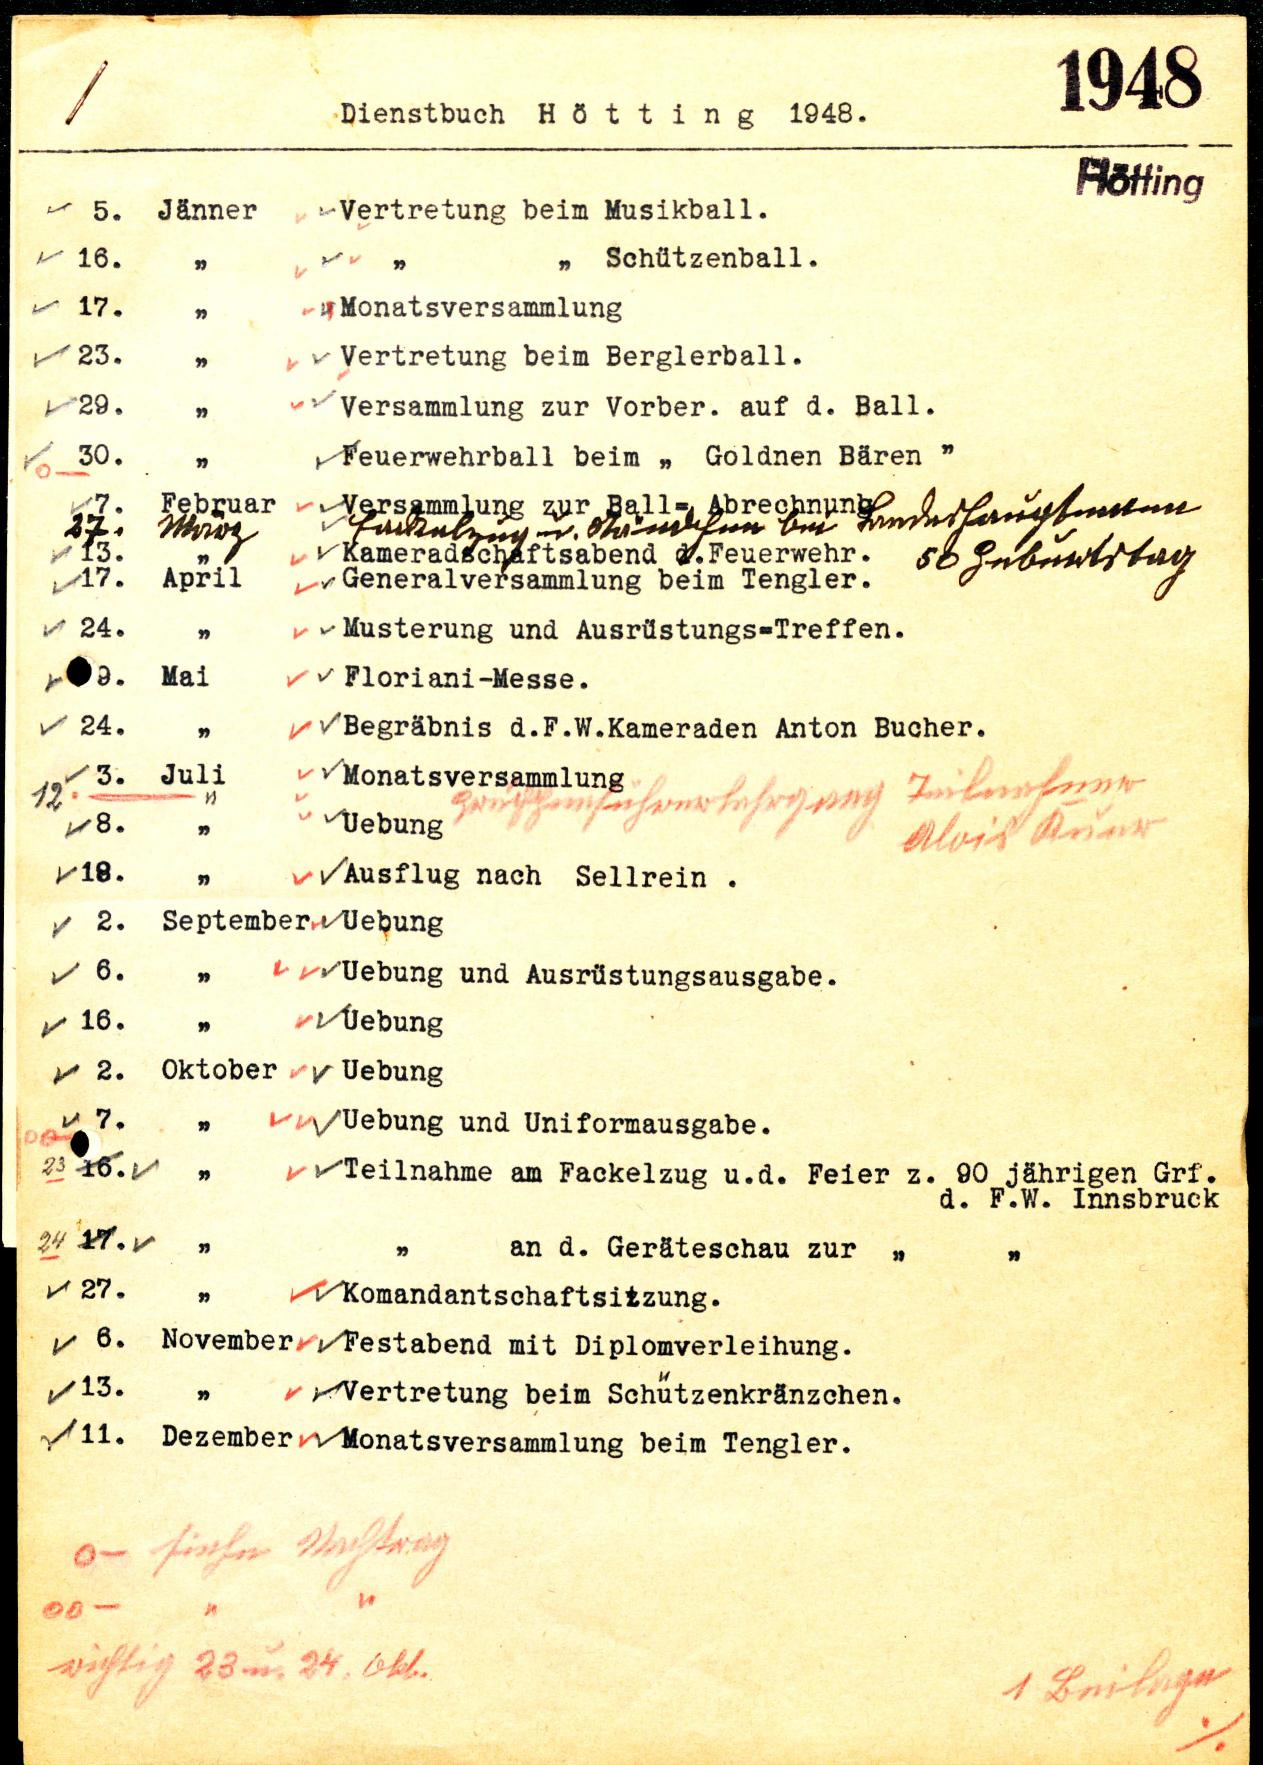 1948
Dienstbuch H ö t t i n g 1948.
Hötting
5. Jänner Vertretung beim Musikball.
16. „ „ „ Schützenball.
17. „ Monatsversammlung
23. „ Vertretung beim Berglerball.
29. „ Versammlung zur Vorber. auf d. Ball.
30. „ Feuerwehrball beim „ Goldnen Bären ”
o—
7. Februar Versammlung zur Ball= Abrechnung
27. März Fackelzug u. Ständchen bei Landeshauptmann
13. „ Kameradschaftsabend d.Feuerwehr. 50 Geburtstag
17. April Generalversammlung beim Tengler.
24. „ Musterung und Ausrüstungs=Treffen.
9. Mai Floriani-Messe.
24. „ Begräbnis d.F.W.Kameraden Anton Bucher.
3. Juli Monatsversammlung
12. " Gruppenführerlehrgang Teilnehmer
8. „ Uebung Alois
18. „ Ausflug nach Sellrein .
2. September Uebung
6. „ Uebung und Ausrüstungsausgabe.
16. „ Uebung
2. Oktober Uebung
7. „ Uebung und Uniformausgabe.
oo—
23 16. „ Teilnahme am Fackelzug u.d. Feier z. 90 jährigen Grf.
d. F.W. Innsbruck
24 17. „ „ an d. Geräteschau zur „ „
27. „ Komandantschaftsitzung.
6. November Festabend mit Diplomverleihung.
13. „ Vertretung beim Schützenkränzchen.
11. Dezember Monatsversammlung beim Tengler.
o— siehe Nachtrag
oo— " "
wichtig 23 u. 24. Okt.
1 Beilage
./.